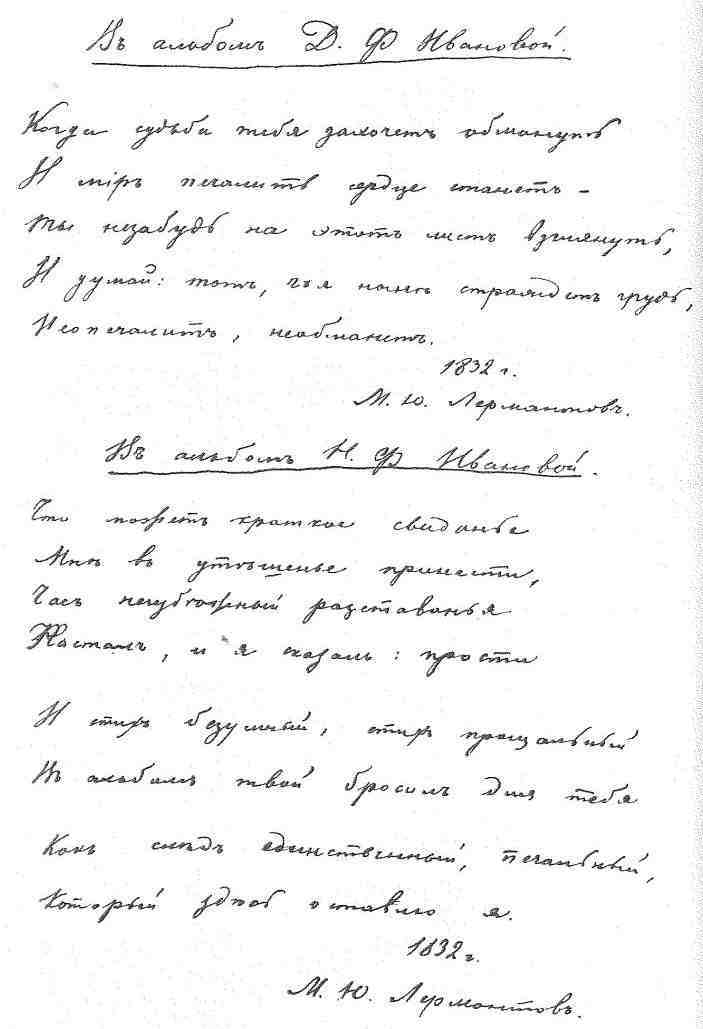 Въ альбомъ Д. Ф Ивановой.
Когда судьба тебя захочетъ обмануть
И мiръ печалить сердце станетъ –
Ты незабудь на этотъ листъ взглянуть,
И думай: тотъ, чья ныне страждетъ грудь,
Неопечалитъ, необманетъ.
1832 г.
М. Ю. Лермантовъ.
Въ альбомъ Н. Ф Ивановой.
Что можетъ краткое свиданье
Мнѣ въ утѣшенье принести,
Часъ неизбѣжный разставанья
Насталъ, и я сказалъ: прости
И стихъ безумный, стихъ прощальный
Въ альбомъ твой бросилъ для тебя
Какъ слѣдъ единственный, печальный,
Который здѣсь оставлю я.
1832 г.
М. Ю. Лермонтовъ.